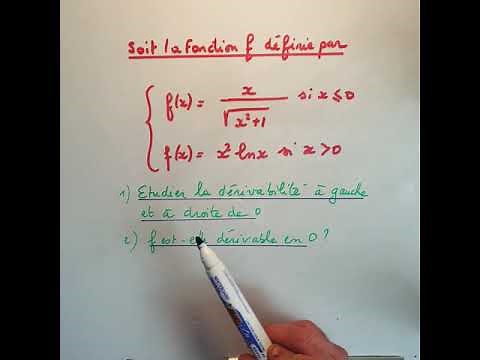 Soit la fonction f définie par
f(x) = x / √x²+1 si x ≤ 0
f(x) = x² ln x si x > 0
1) Etudier la dérivabilité à gauche
et à droite de 0
2) f est-elle dérivable en 0 ?